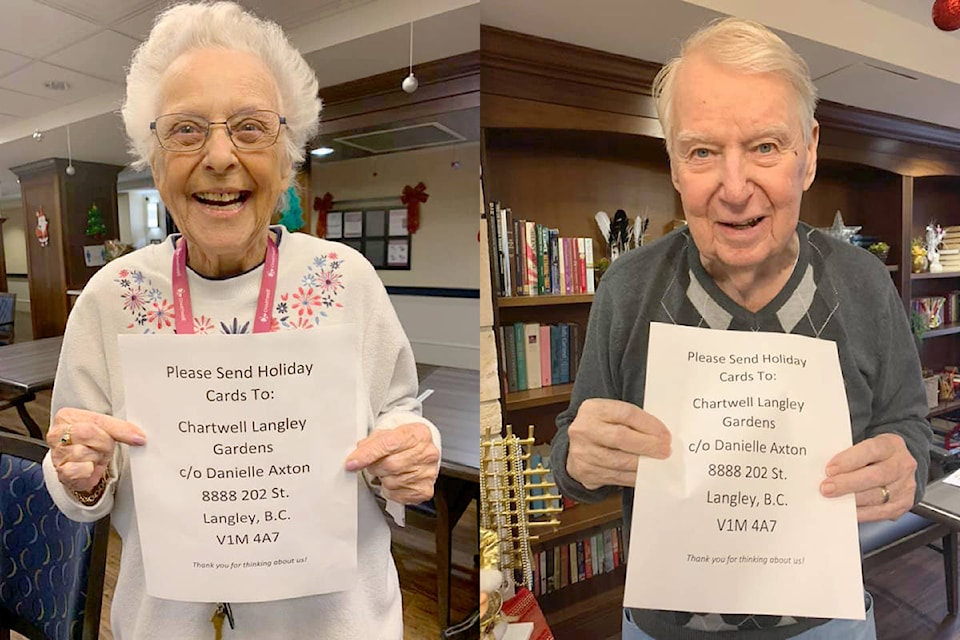 Please Send Holiday
Cards To:
Chartwell Langley
Gardens
c/o Danielle Axton
8888 202 St.
Langley, B.C.
V1M 4A7
Thank you for thinking about us!
Please Send Holiday
Cards To:
Chartwell Langley
Gardens
c/o Danielle Axton
8888 202 St.
Langley, B.C.
V1M 4A7
Thank you for thinking about us!